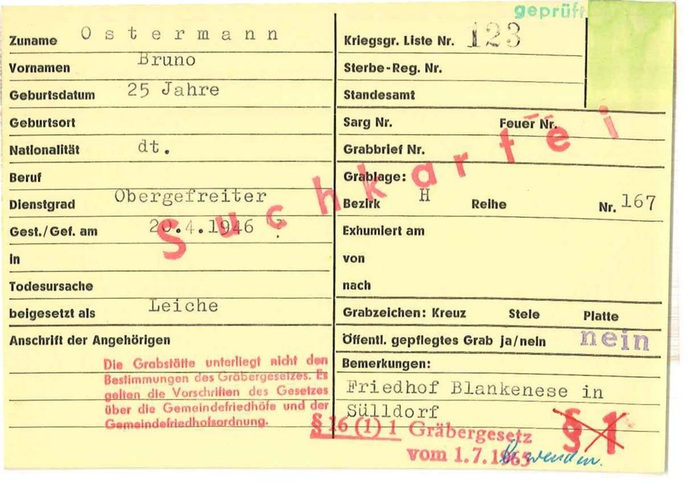 geprüft
Zuname Ostermann
Vornamen Bruno
Geburtsdatum 25 Jahre
Geburtsort
Nationalität dt.
Beruf
Dienstgrad Obergefreiter
Gest./Gef. am 20.4.1946 ?
in
Todesursache
beigesetzt als Leiche
Anschrift der Angehörigen
Die Grabstätte unterliegt nicht den
Bestimmungen des Gräbergesetzes. Es
gelten die Vorschriften des Gesetzes
über die Gemeindefriedhöfe und der
Gemeindefriedhofsordnung.
Kriegsgr. Liste Nr. 123
Sterbe-Reg. Nr.
Standesamt
Sarg Nr. Feuer Nr.
Grabbrief Nr.
Grablage:
Bezirk H Reihe Nr. 167
Exhumiert am
von
nach
Grabzeichen: Kreuz Stele Platte
Öffentl. gepflegtes Grab ja/nein nein
Bemerkungen:
Friedhof Blankenese in
Sülldorf
§ 16 (1) 1 Gräbergesetz
vom 1.7.1965
§ 1
Suchkartei